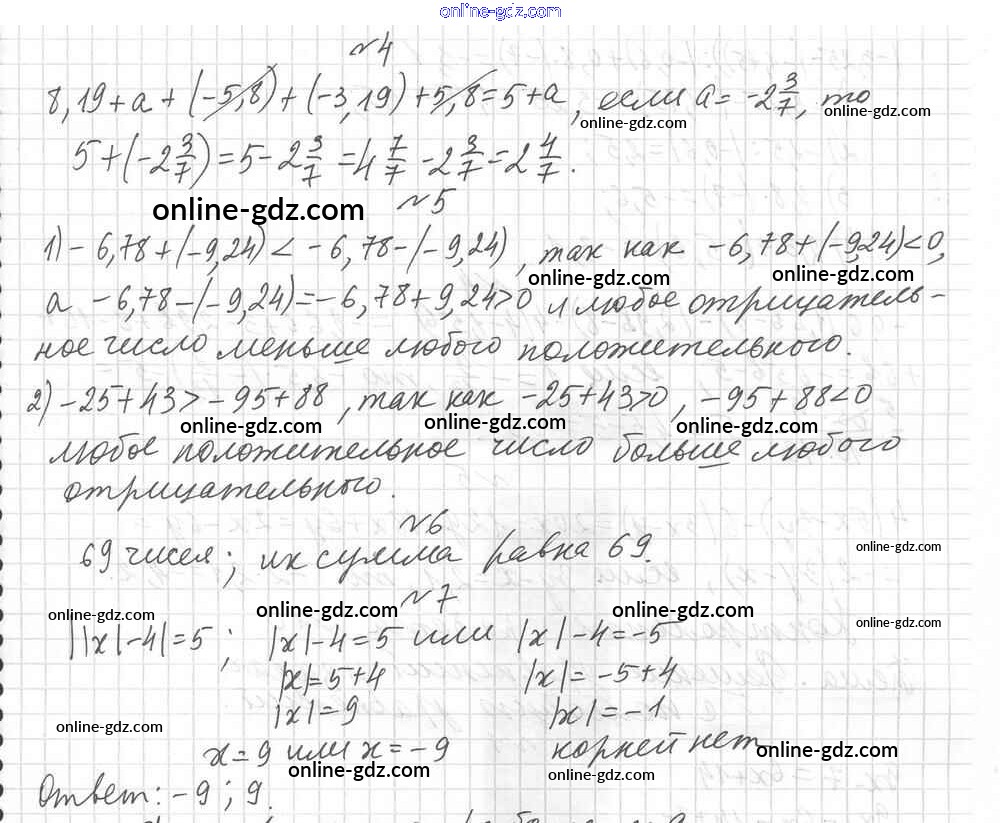 online-gdz.com
№4
8,19+a+(-5,8)+(-3,19)+5,8=5+a, если a=-2 3/7, то
online-gdz.com online-gdz.com
5+(-2 3/7)=5-2 3/7=4 7/7-2 3/7=2 4/7.
online-gdz.com №5
1) -6,78+(-9,24)<-6,78-(-9,24), так как -6,78+(-9,24)<0,
online-gdz.com online-gdz.com
а -6,78-(-9,24)=-6,78+9,24>0 и любое отрицатель-
ное число меньше любого положительного.
2) -25+43>-95+88, так как -25+43>0, -95+88<0
online-gdz.com online-gdz.com online-gdz.com
любое положительное число больше любого
отрицательного.
№6
69 чисел; их сумма равна 69.
online-gdz.com
№7
online-gdz.com online-gdz.com online-gdz.com
online-gdz.com
||x|-4|=5; |x|-4=5 или |x|-4=-5
|x|=5+4 |x|=-5+4
|x|=9 |x|=-1
online-gdz.com
x=9 или x=-9 корней нет
online-gdz.com
online-gdz.com online-gdz.com
Ответ: -9; 9.